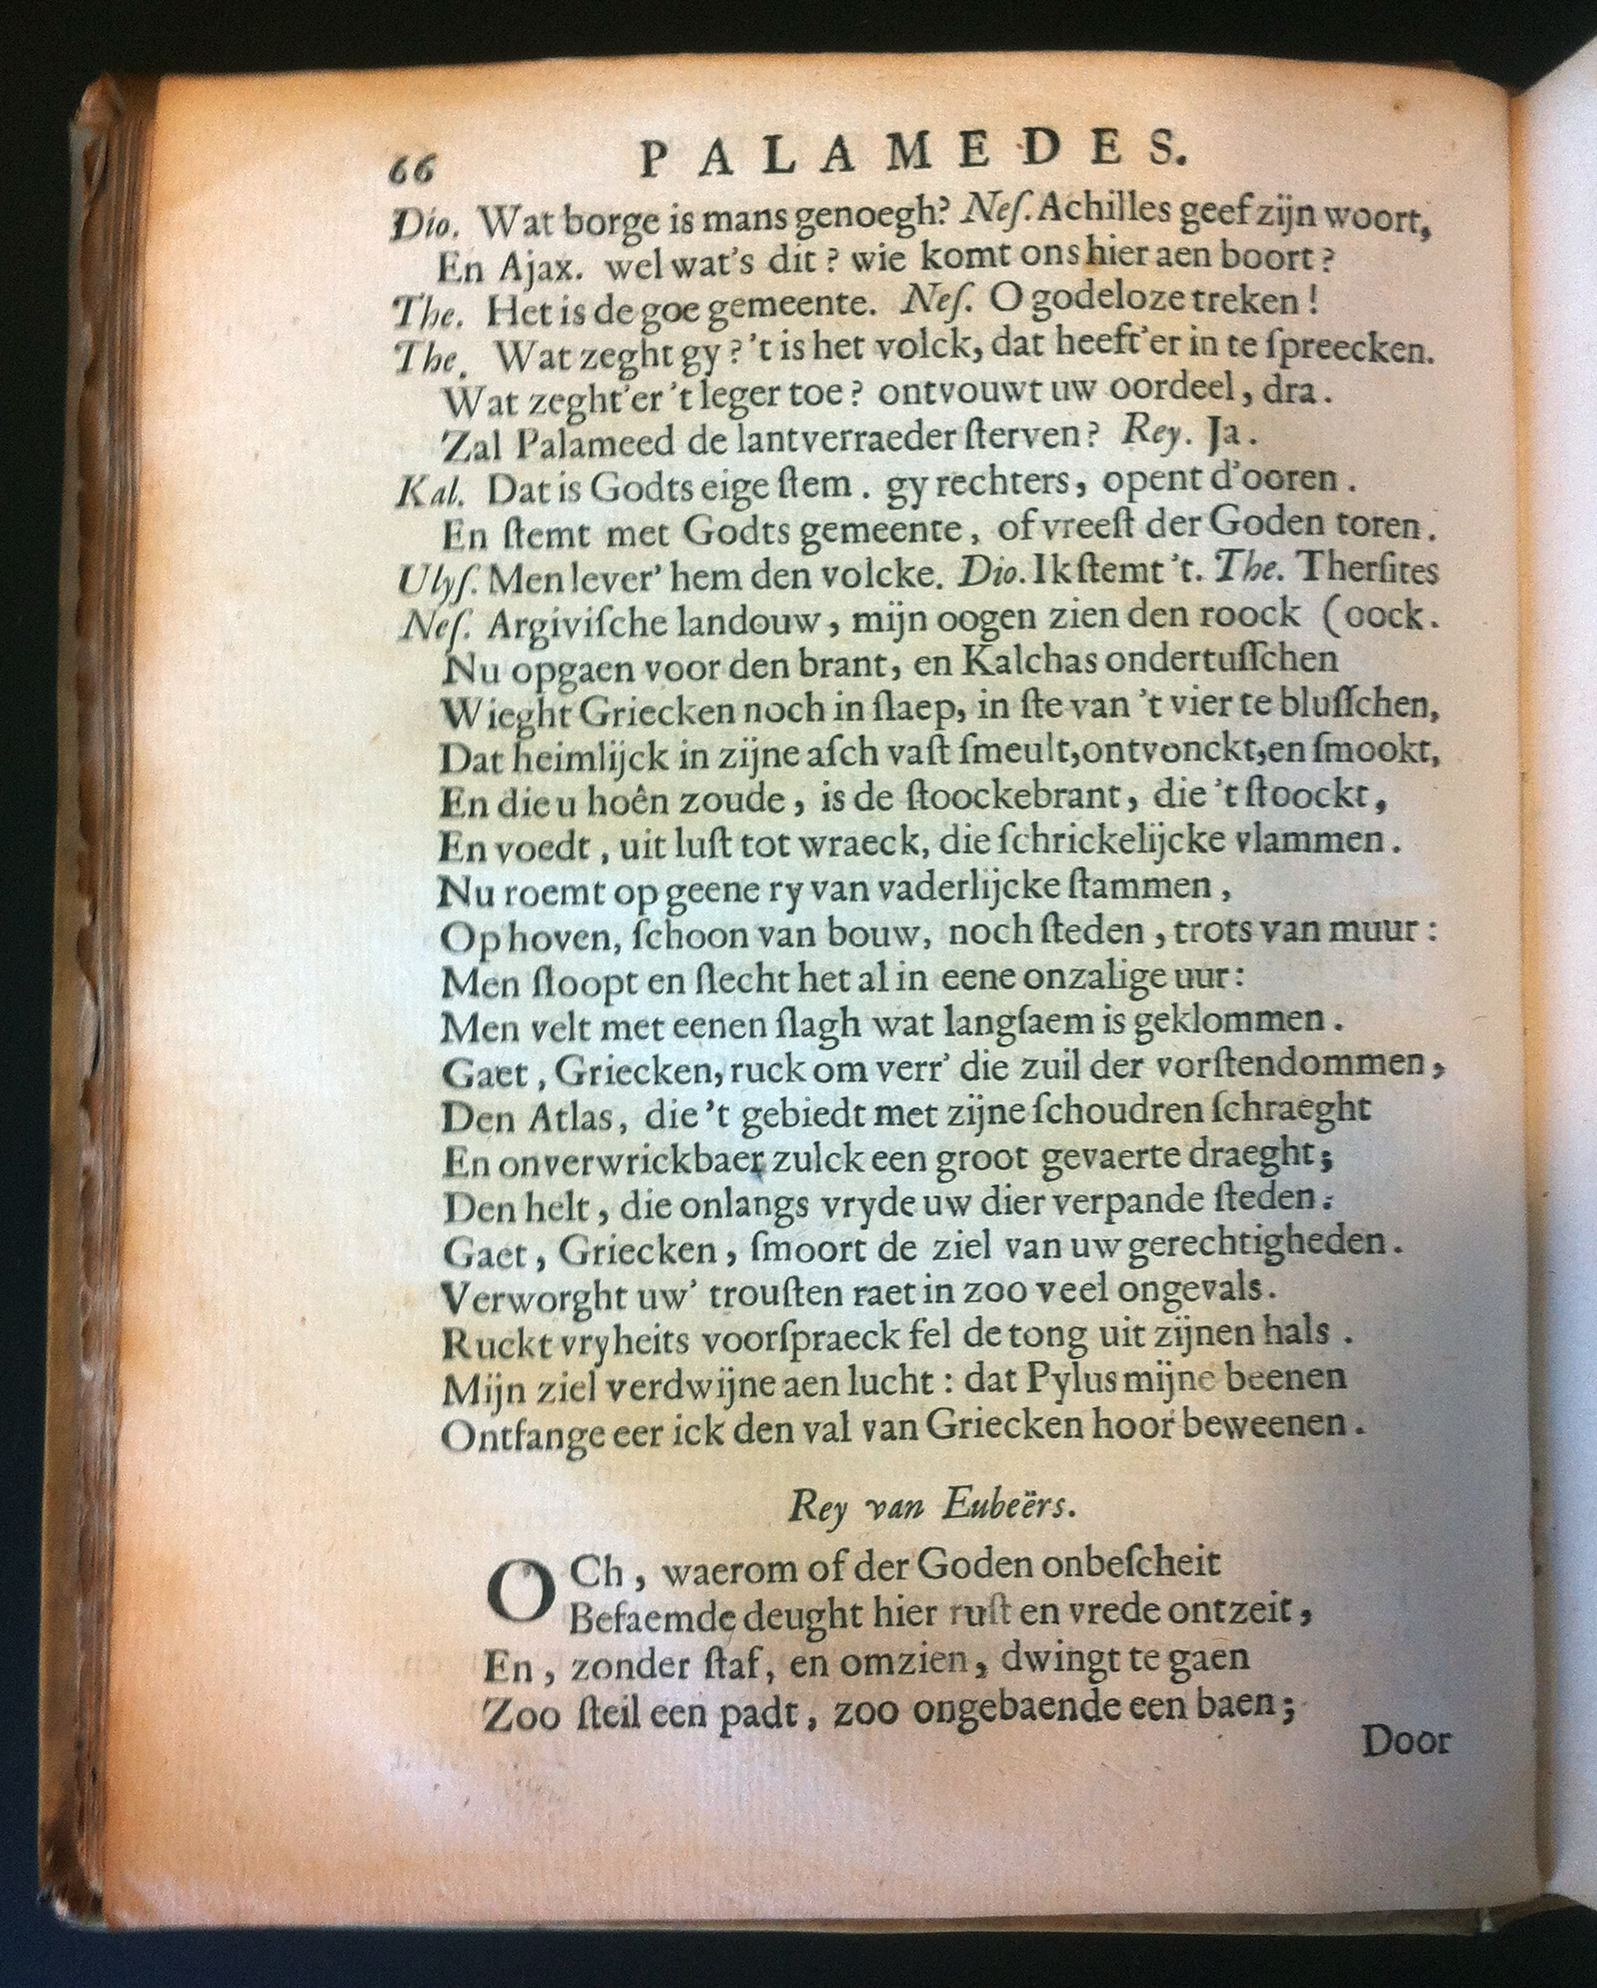 66 PALAMEDES.
Dio. Wat borge is mans genoegh? Neſ. Achilles geef zijn woort,
En Ajax. wel wat's dit? wie komt ons hier aen boort?
The. Het is de goe gemeente. Neſ. O godeloze treken!
The. Wat zeght gy? 't is het volck, dat heeft'er in te ſpreecken.
Wat zeght'er 't leger toe? ontvouwt uw oordeel, dra.
Zal Palameed de lantverraeder ſterven? Rey. Ja.
Kal. Dat is Godts eige ſtem. gy rechters, opent d'ooren.
En ſtemt met Godts gemeente, of vreeſt der Goden toren.
Ulyſ. Men lever' hem den volcke. Dio. Ik ſtemt 't. The. Therſites
Neſ. Argiviſche landouw, mijn oogen zien den roock (oock.
Nu opgaen voor den brant, en Kalchas ondertuſſchen
Wieght Griecken noch in ſlaep, in ſte van 't vier te bluſſchen,
Dat heimlijck in zijne aſch vaſt ſmeult, ontvonckt, en ſmookt,
En die u hoên zoude, is de ſtoockebrant, die 't ſtoockt,
En voedt, uit luſt tot wraeck, die ſchrickelijcke vlammen.
Nu roemt op geene ry van vaderlijcke ſtammen,
Op hoven, ſchoon van bouw, noch ſteden, trots van muur:
Men ſloopt en ſlecht het al in eene onzalige uur:
Men velt met eenen ſlagh wat langſaem is geklommen.
Gaet, Griecken, ruck om verr' die zuil der vorſtendommen,
Den Atlas, die 't gebiedt met zijne ſchoudren ſchraeght
En onverwrickbaer zulck een groot gevaerte draeght;
Den helt, die onlangs vryde uw dier verpande ſteden:
Gaet, Griecken, ſmoort de ziel van uw gerechtigheden.
Verworght uw' trouſten raet in zoo veel ongevals.
Ruckt vryheits voorſpraeck fel de tong uit zijnen hals.
Mijn ziel verdwijne aen lucht: dat Pylus mijne beenen
Ontfange eer ick den val van Griecken hoor beweenen.
Rey van Eubeërs.
OCh, waerom of der Goden onbeſcheit
Befaemde deught hier ruſt en vrede ontzeit,
En, zonder ſtaf, en omzien, dwingt te gaen
Zoo ſteil een padt, zoo ongebaende een baen;
Door